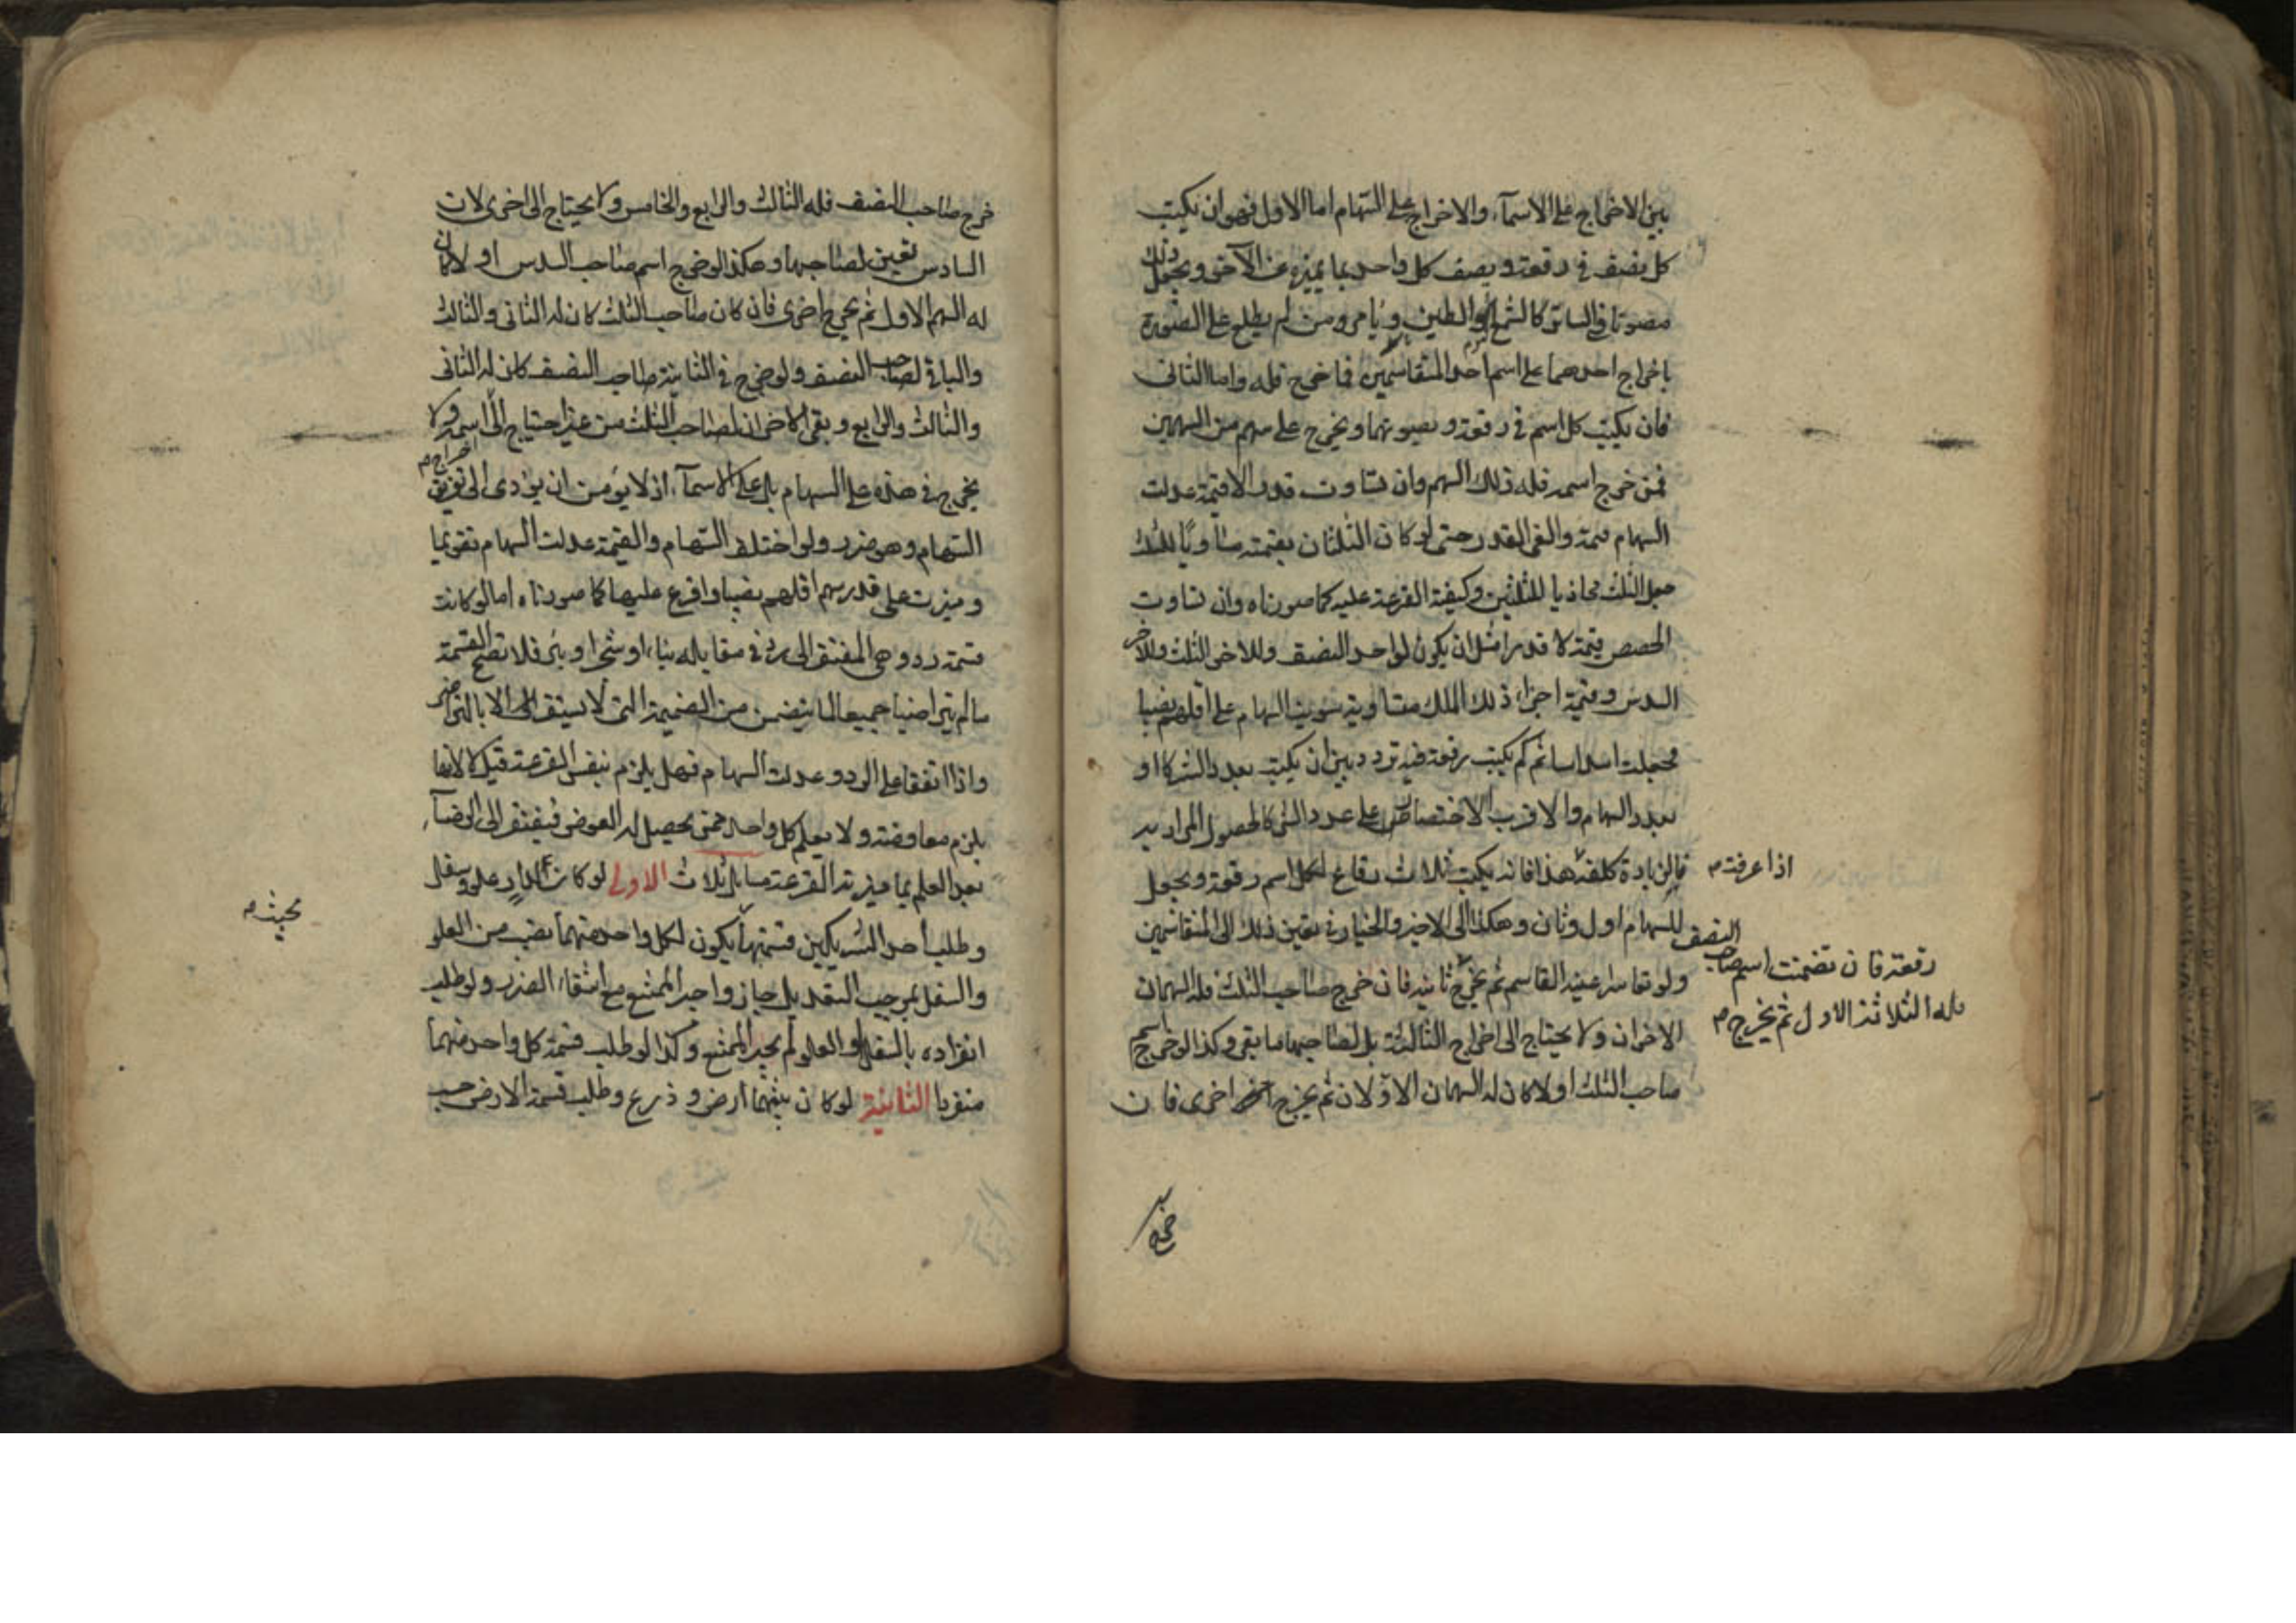 بين الاخراج على الاسمآء والاخراج على السهام اما الاول فهو ان يكتب
كل نصف فى رقعة و يصف كل واحد بما يميزه عن الآخر ويجعل ذلك
مصونا فى الساتر كالشمع او الطين و يامر من لم يطلع على الصورة
باخراج احدهما على اسم احد المتقاسمين فما خرج فله واما الثانى
فان يكتب كل اسم فى رقعة و يصونهما ويخرج على سهم من السهمين
فمن خرج اسمه فله ذلك السهم وان تساوت قدرا لا قيمة عدلت
السهام قيمة والغى القدر حتى لو كان الثلثان بقيمته مساويا للثلث
جعل الثلث محاذيا للثلثين وكيفية القرعة عليه كما صورناه وان تساوت
الحصص قيمة لا قدرا مثل ان يكون لواحد النصف وللاخر الثلث وللاخر
السدس وقيمة اجزاء ذلك الملك متساوية سويت السهام على اقلهم نصيبا
فجعلت اسداسا ثم كم يكتب رقعة فيه تردد بين ان يكتب بعدد الشركا او
بعدد السهام والاقرب الاختصار على عدد الشركا لحصول المراد به
فالزيادة كلفة هذا فانه يكتب ثلاث رقاع لكل اسم رقعة ويجعل
اذا عرفت م
للسهام اول وثان وهكذا الى الاخير والخيار فى تعيين ذلك الى المتقاسمين
ولو تعاسرا عينه القاسم ثم يخرج ثانية فان خرج صاحب الثلث فله السهمان
رقعة فان تضمنت اسم صاحب النصف
فله الثلاثة الاول ثم يخرج م
الاخران ولا يحتاج الى اخراج الثالثة بل لصاحبها ما بقى وكذا لو خرج اسم
صاحب الثلث اولا كان له السهمان الاولان ثم يخرج اخرى فان
خرج صاحب النصف فله الثالث والرابع والخامس ولا يحتاج الى اخرى لان
السادس تعين لصاحبها وهكذا لو خرج اسم صاحب السدس اولا كان
له السهم الاول ثم يخرج اخرى فان كان صاحب الثلث كان له الثانى والثالث
والباقى لصاحب النصف ولو خرج فى الثانية صاحب النصف كان له الثانى
والثالث والرابع وبقى الاخران لصاحب الثلث من غير احتياج الى اخراج اسمه ولا
يخرج فى هذه على السهام بل على الاسمآء اذ لا يؤمن ان يؤدى الى تفريق
السهام وهو ضرر ولو اختلف السهام والقيمة عدلت السهام تقويما
وميزت على قدر سهم اقلهم نصيبا واقرع عليها كما صورناه اما لو كانت
قسمة رد وهى المفتقر الى رد فى مقابله بناء او شجر او بئر فلا تصح القسمة
مالم يتراضيا جميعا لما يتضمن من الضميمة التى لا تستقر الا بالتراضى
واذا اتفقا على الرد و عدلت السهام فهل يلزم بنفس القرعة قيل لا لانها
يلزم معاوضة ولا يعلم كل واحد من يحصيل له العوض فيفتقر الى الرضآء
بعد العلم بما ميزته القرعة مسائل ثلاث الاولى لو كان الدار علو وسفل
وطلب احد الشريكين قسمتها يكون لكل واحد منهما نصيب من العلو
بحيث م
والسفل بموجب التعديل جاز واجبر الممتنع مع انتفاء الضرر ولو طلب
انفراده بالسفل او العلو لم يجبر الممتنع وكذا لو طلب قسمة كل واحد منهما
منفردا الثانية لو كان بينهما ارض و ذرع وطلب قسمة الارض حسب